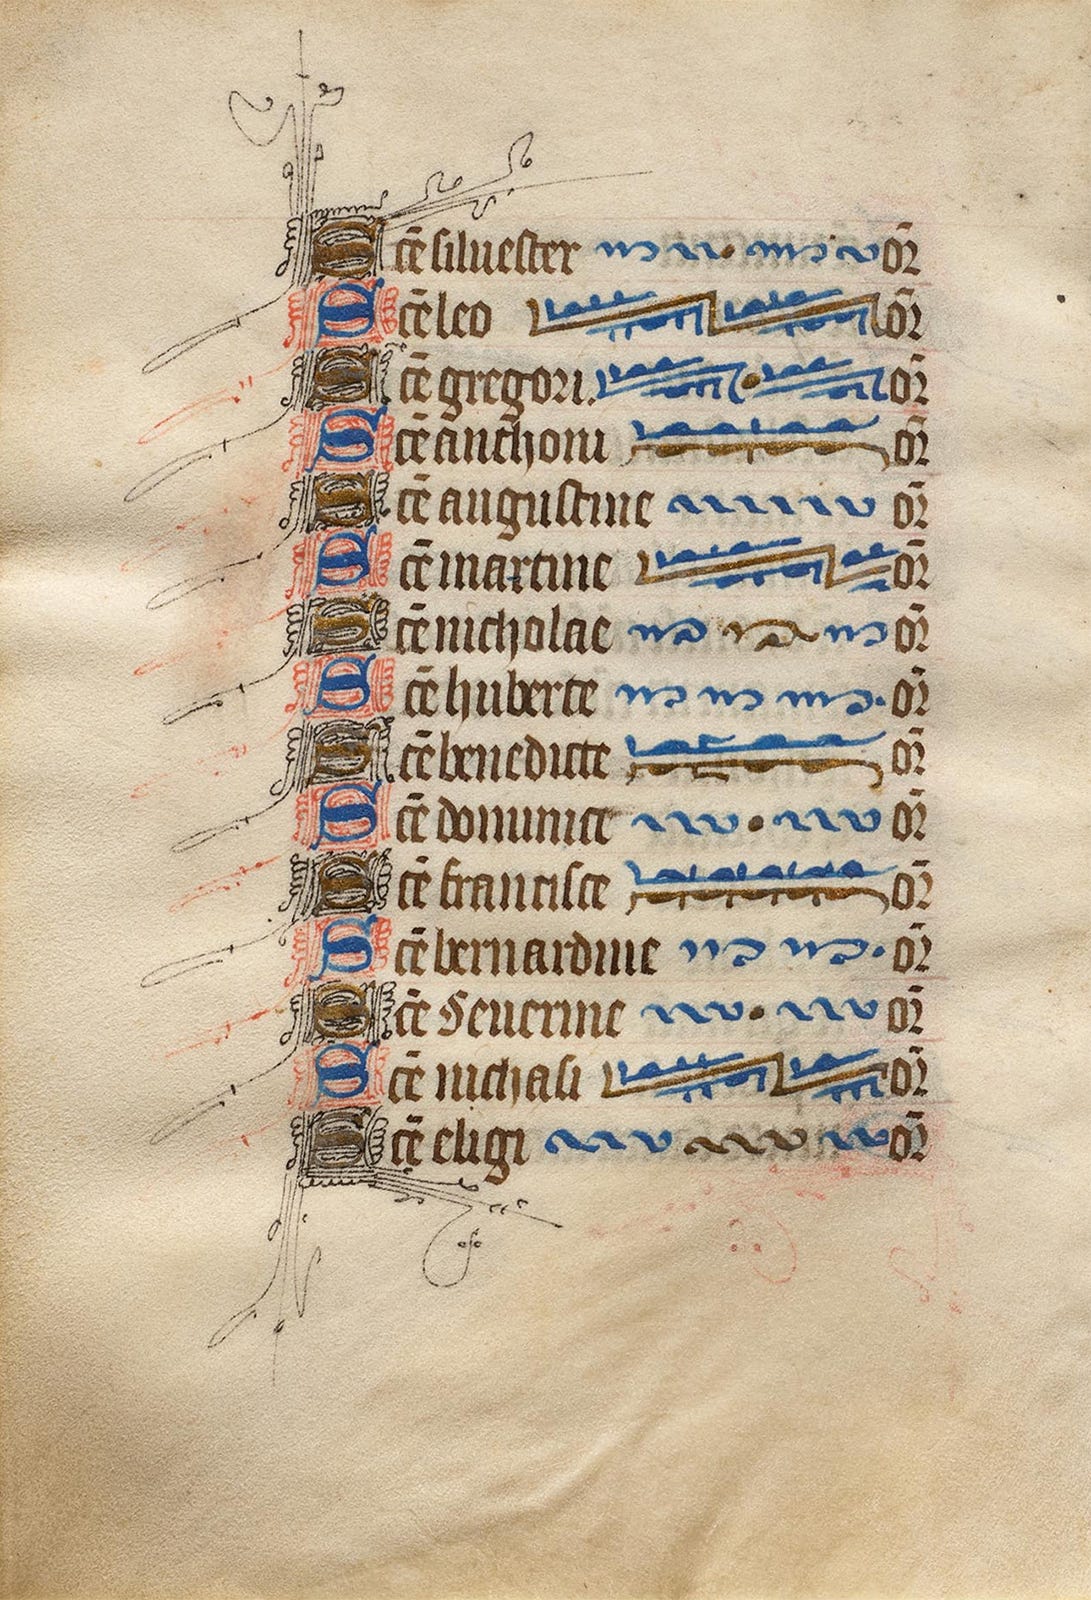 Scē siluester or̄
Scē leo or̄
Scē gregori. or̄
Scē anthoni or̄
Scē augustine or̄
Scē martine or̄
Scē nicholae or̄
Scē huberte or̄
Scē benedicte or̄
Scē dominice or̄
Scē francisce or̄
Scē bernardine or̄
Scē Seuerine or̄
Scē nichasi or̄
Scē eligi or̄